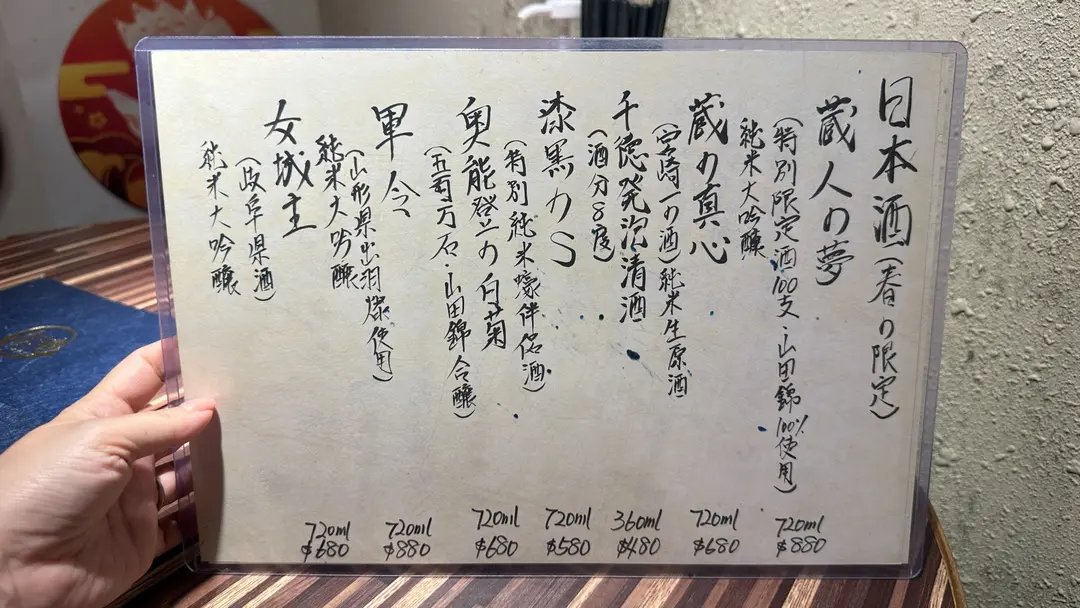 日本酒(春の限定)
蔵人の夢
(特別限定酒100支・山田錦100%使用)
純米大吟醸
720ml
$880
蔵の真心
(宮崎一の酒)純米生原酒
720ml
$680
千徳発泡清酒
(酒分8度)
360ml
$480
漆黒のS
(特別純米蠔伴侶酒)
720ml
$580
奥能登の白菊
(五百万石・山田錦合醸)
720ml
$680
軍令
(山形県出羽燦使用)
純米大吟醸
720ml
$880
女城主
(岐阜県酒)
純米大吟醸
720ml
$680